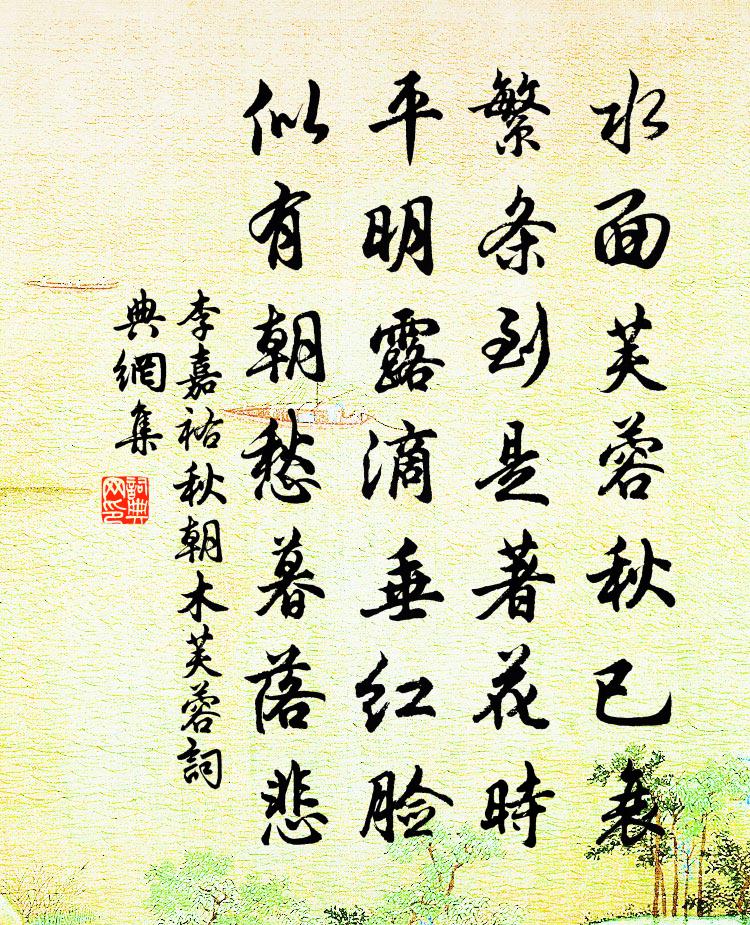 水面芙蓉秋已衰
繁条到是著花時
平明露滴垂红脸
似有朝愁暮落悲
李嘉祐秋朝木芙蓉詞
典網集
詞典
网印